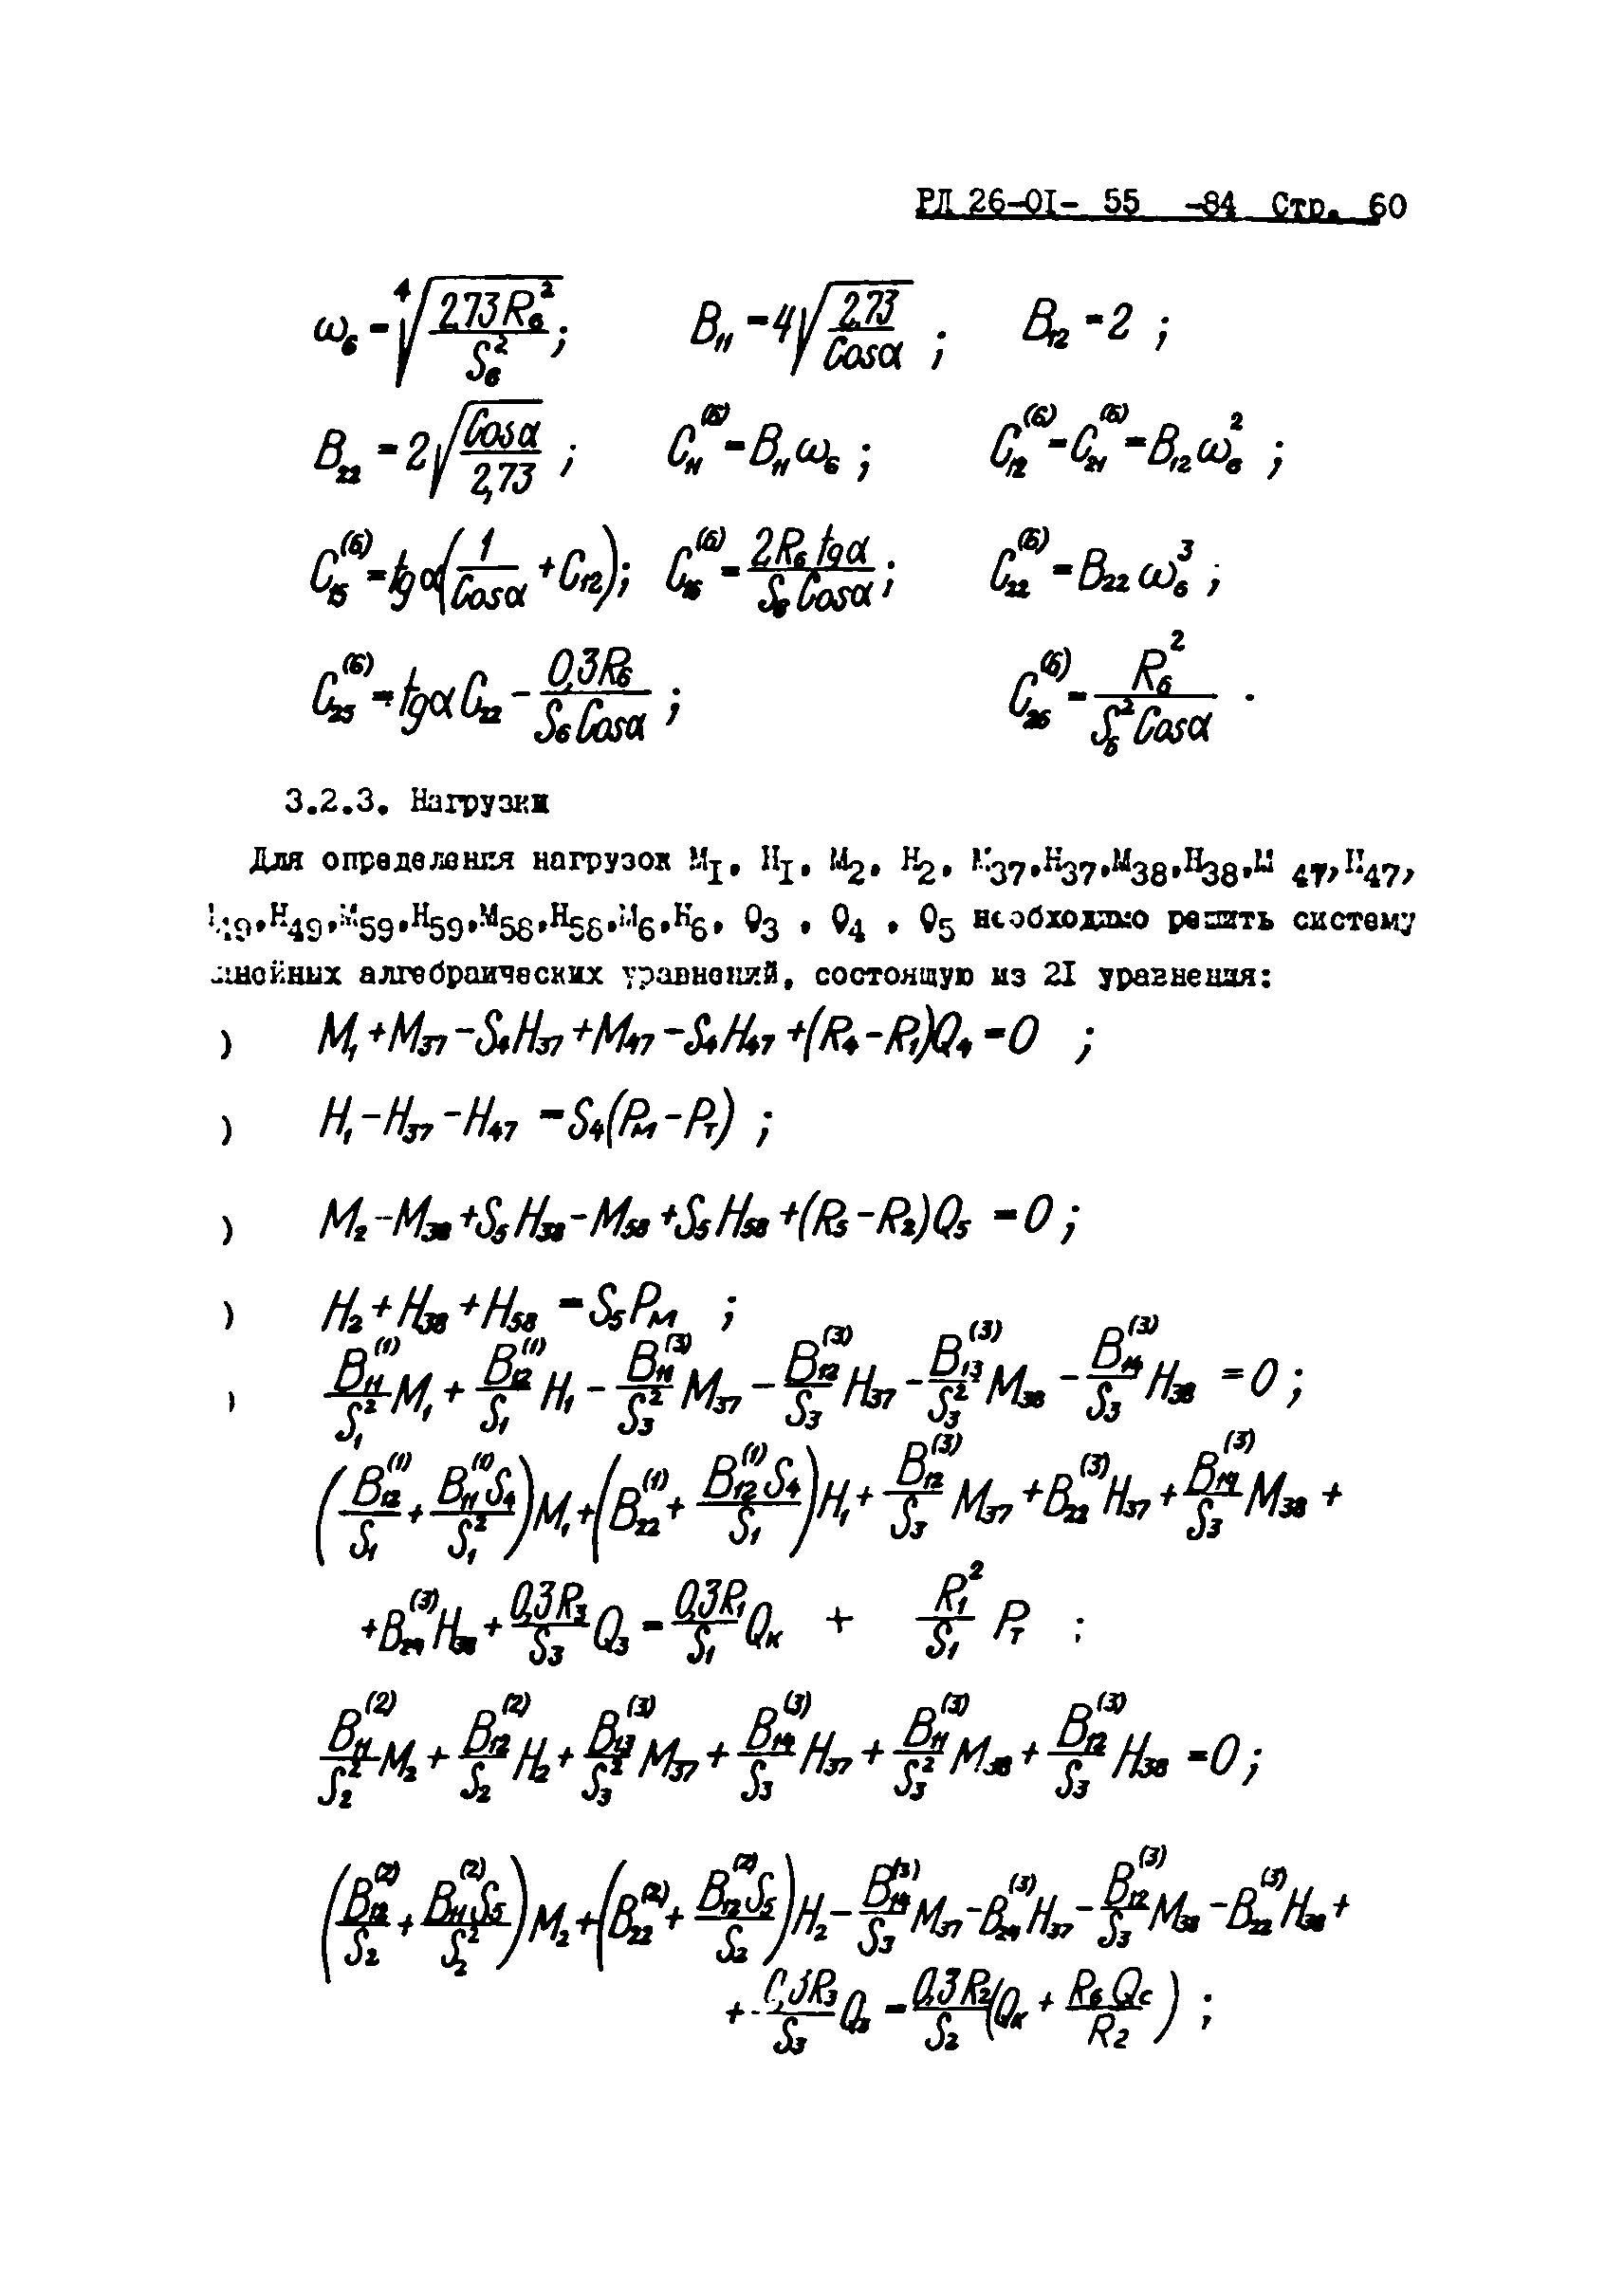 РД 26-01- 55 -84 Стр. 60
ω₆ = ⁴√(2,73R₆²/S₆²); B₁₁ = 4√(2,73/Cosα); B₁₂ = 2;
B₂₂ = 2√(Cosα/2,73); C₁₁⁽⁶⁾ = B₁₁ω₆; C₁₂⁽⁶⁾ = C₂₁⁽⁶⁾ = B₁₂ω₆²;
C₁₅⁽⁶⁾ = tgα(1/Cosα + C₁₂); C₁₆⁽⁶⁾ = 2R₆tgα/(S₆Cosα); C₂₂⁽⁶⁾ = B₂₂ω₆³;
C₂₅⁽⁶⁾ = tgαC₂₂ - 0,3R₆/(S₆Cosα); C₂₆⁽⁶⁾ = R₆²/(S₆²Cosα).
3.2.3. Нагрузки
Для определения нагрузок M₁, H₁, M₂, H₂, M₃₇, H₃₇, M₃₈, H₃₈, M₄₇, H₄₇,
M₄₉, H₄₉, M₅₉, H₅₉, M₅₈, H₅₈, M₆, H₆, Q₃, Q₄, Q₅ необходимо решить систему
линейных алгебраических уравнений, состоящую из 21 уравнения:
) M₁ + M₃₇ - S₄H₃₇ + M₄₇ - S₄H₄₇ + (R₄ - R₁)Q₄ = 0;
) H₁ - H₃₇ - H₄₇ = S₄(Pм - Pт);
) M₂ - M₃₈ + S₅H₃₈ - M₅₈ + S₅H₅₈ + (R₅ - R₂)Q₅ = 0;
) H₂ + H₃₈ + H₅₈ = S₅Pм;
) B₁₁⁽¹⁾/S₁² M₁ + B₁₂⁽¹⁾/S₁ H₁ - B₁₁⁽³⁾/S₃² M₃₇ - B₁₂⁽³⁾/S₃ H₃₇ - B₁₃⁽³⁾/S₃² M₃₈ - B₁₄⁽³⁾/S₃ H₃₈ = 0;
(B₁₂⁽¹⁾/S₁ + B₁₁⁽¹⁾S₄/S₁²)M₁ + (B₂₂⁽¹⁾ + B₁₂⁽¹⁾S₄/S₁)H₁ + B₁₂⁽³⁾/S₃ M₃₇ + B₂₂⁽³⁾H₃₇ + B₁₄⁽³⁾/S₃ M₃₈ +
+ B₂₄⁽³⁾H₃₈ + 0,3R₃/S₃ Q₃ = 0,3R₁/S₁ Qк + R₁²/S₁ Pт;
B₁₁⁽²⁾/S₂² M₂ + B₁₂⁽²⁾/S₂ H₂ + B₁₃⁽³⁾/S₃² M₃₇ + B₁₄⁽³⁾/S₃ H₃₇ + B₁₁⁽³⁾/S₃² M₃₈ + B₁₂⁽³⁾/S₃ H₃₈ = 0;
(B₁₂⁽²⁾/S₂ + B₁₁⁽²⁾S₅/S₂²)M₂ + (B₂₂⁽²⁾ + B₁₂⁽²⁾S₅/S₂)H₂ - B₁₄⁽³⁾/S₃ M₃₇ - B₂₄⁽³⁾H₃₇ - B₁₂⁽³⁾/S₃ M₃₈ - B₂₂⁽³⁾H₃₈ +
+ 0,3R₃/S₃ Q₃ = 0,3R₂/S₂ (Qк + R₆Qс/R₂);